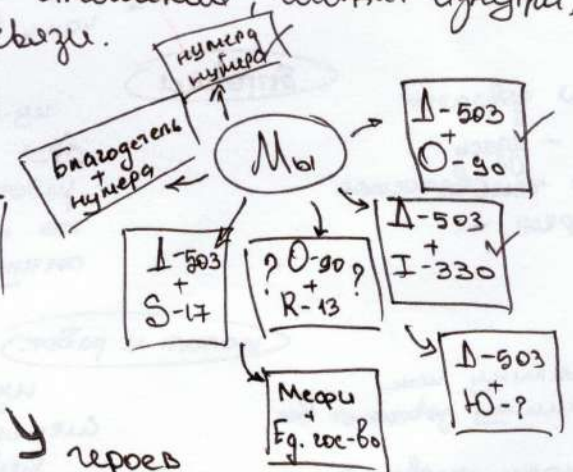 связи.
нумера
+
нумера
Благодетель
+
нумера
Мы
Д-503
+
О-90
Д-503
+
I-330
Д-503
+
S-17
? О-90 ?
+
R-13
Д-503
+
Ю-?
Мефи
+
Ед. гос-во
У героев